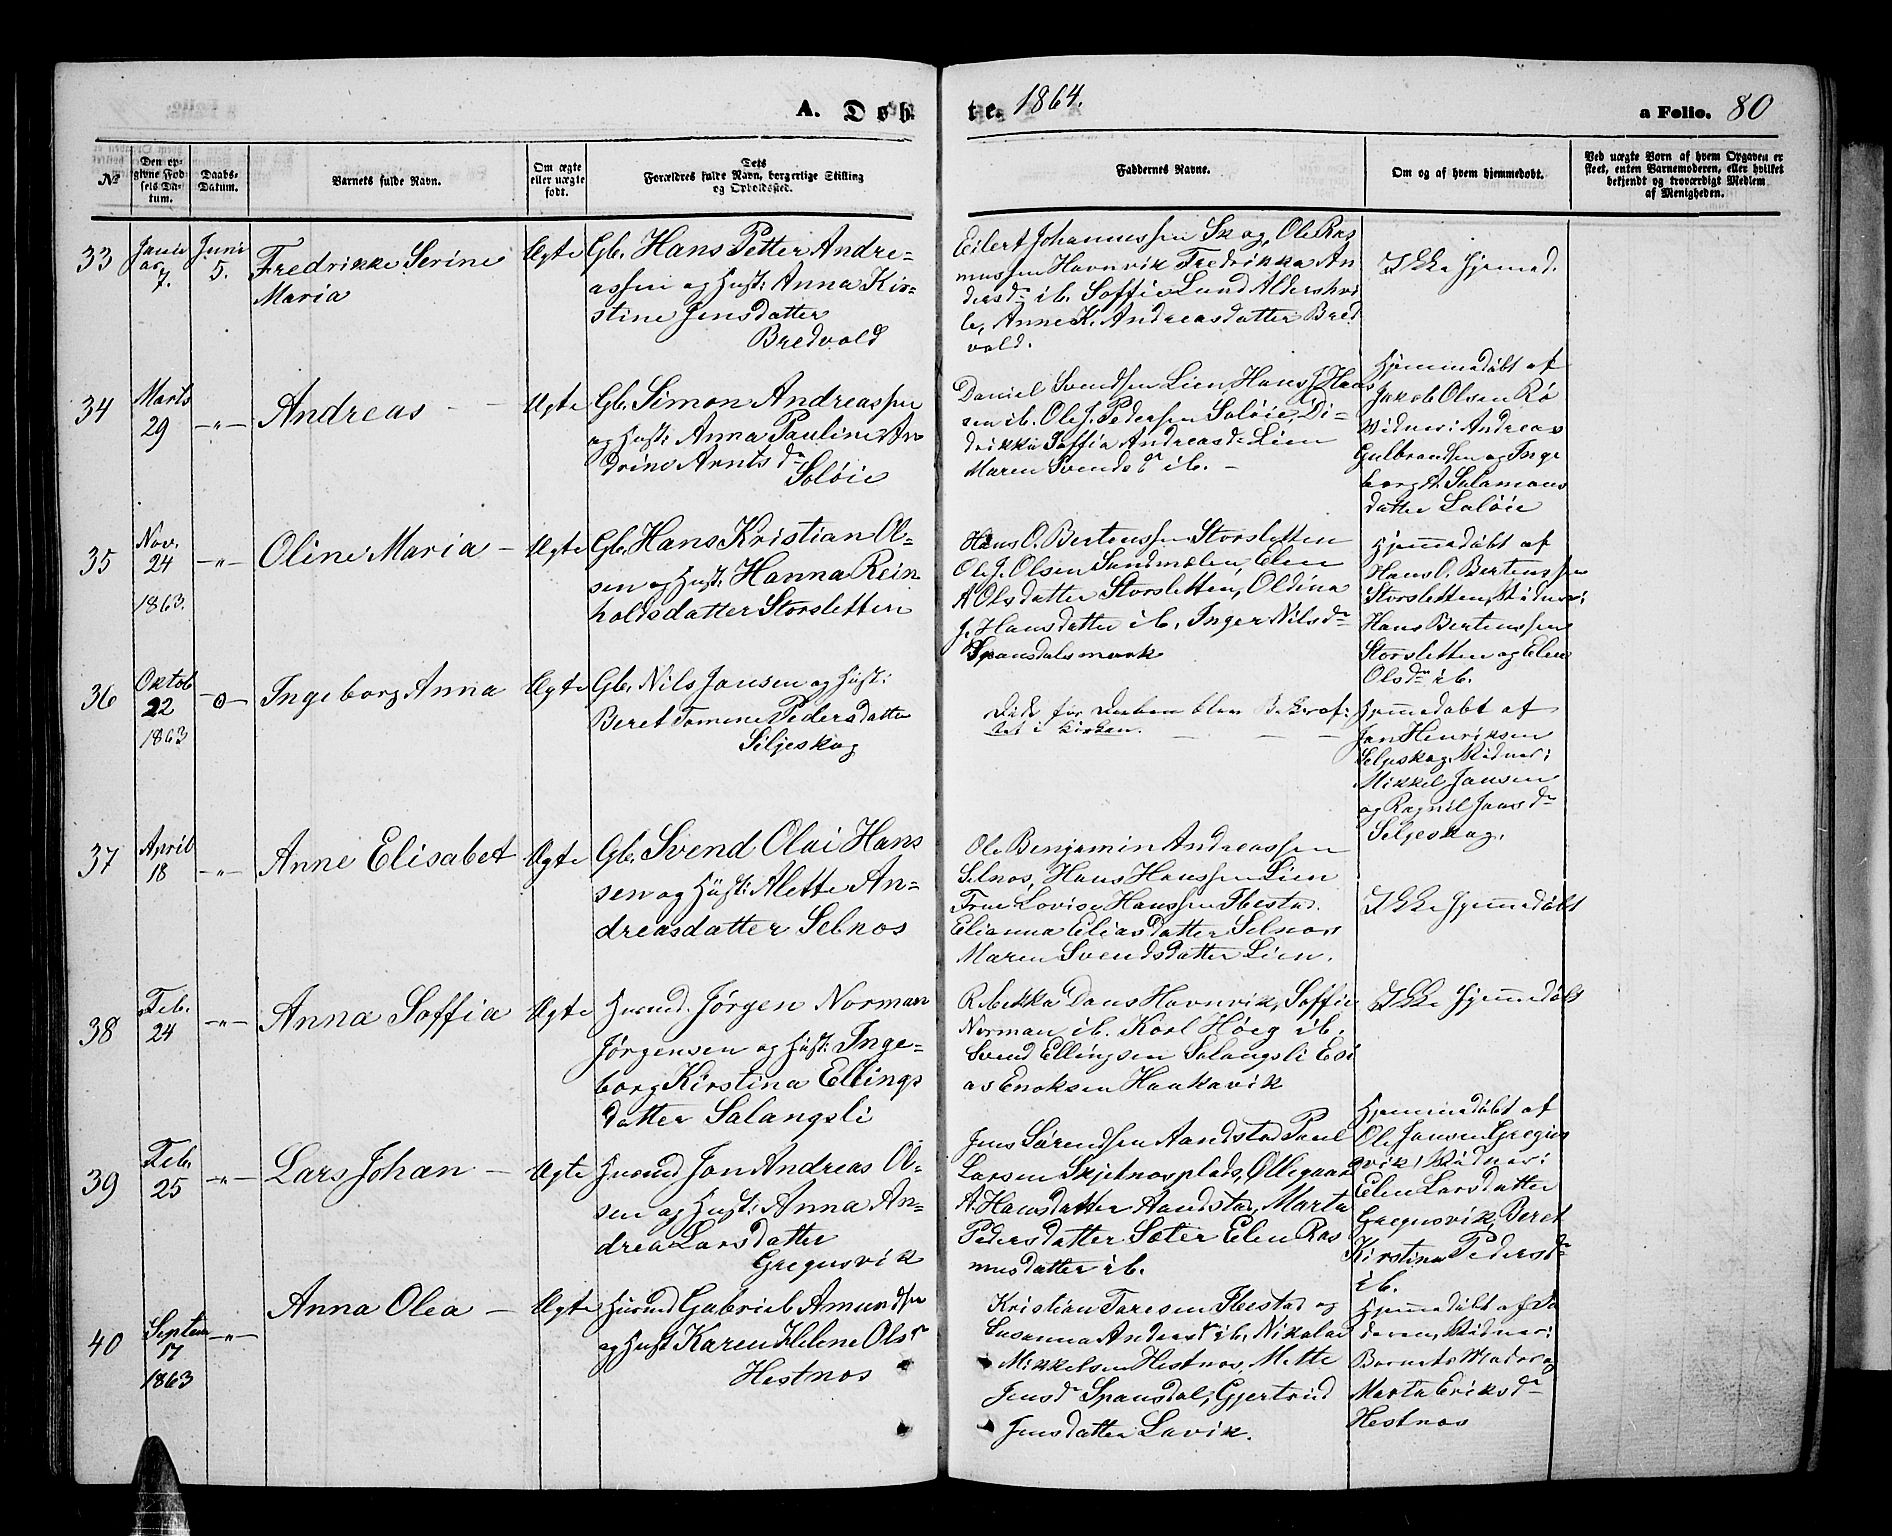 A. Døb
te. 1864.
a Folio. 80
№
Den opgivne Fødsels Datum.
Daabs-Datum.
Barnets fulde Navn.
Om ægte eller uægte født.
Dets Forældres fulde Navn, borgerlige Stilling og Opholdssted.
Faddernes Navne.
Om og af hvem hjemmedøbt.
Ved uægte Børn af hvem Opgaven er skeet, enten Barnemoderen, eller hvilket bekjendt og troværdigt Medlem af Menigheden.
33
Janu
ar
7.
Juni
5.
Fredrikke Serine
Maria
Ægte
Gb. Hans Petter Andre-
assen og Hust: Anna Kir-
stine Jensdatter
Bredvold
Eilert Johannessen Skog, Ole Ras
mussen Havnvik Fredrikka An
dersdr ib. Soffie Lund Aldershvi
le, Anne K. Andreasdatter Bred
vold.
Ikke hjemmed.
34
Marts
29
-"-
Andreas - -
Ægte
Gb. Simon Andreassen
og Hust: Anna Pauline An
drine Arntsdr
Soløie
Daniel Svendsen Lien Hans J. Hans
sen ib. Ole J. Pedersen Soløie, Di
drikke Soffia Andreasdr Lien
Maren Svendsdr ib. -
Hjemmedøbt af
Jakob Olsen Rø
Vidner: Andreas
Gulbrandsen og Inge
borg A. Salamons
datter Soløie
35
Nov.
24
1863.
-"-
Oline Maria -
Ægte
Gb. Hans Kristian Ol-
sen og Hust: Hanna Rein
holdsdatter Storsletten
Hans O. Bertenssen Storsletten
Ole J. Olsen Sandmælen, Elen
A Olsdatter Storsletten, Oldina
J. Hansdatter ib. Inger Nilsdr
Spansdalsmark
Hjemmedøbt af
Hans O. Bertenssen
Storsletten, Vidner:
Hans Bertenssen
Storsletten og Elen
Olsdr ib.
36
Oktob
22
1863
-o-
Ingeborg Anna
Ægte
Gb. Nils Jansen og Hust:
Beret Tomine Pedersdatter
Seljeskog
Døde før Daaben blev Bekræf-
tet i Kirken. - - -
Hjemmedøbt af
Jan Henriksen
Seljeskog, Vidner:
Mikkel Jansen
og Ragnil Jansdr
Seljeskog.
37
April
18
-"-
Anne Elisabet
Ægte
Gb. Svend Olai Hans
sen og Hust: Alette An-
dreasdatter Selnos
Ole Benjamin Andreassen
Selnos, Hans Hanssen Lien
Frue Lovise Hanssen Ibestad
Elianna Eliasdatter Selnos
Maren Svendsdatter Lien.
Ikke hjemmedøbt
38
Feb.
24
-"-
Anna Soffia
Ægte
Husmd. Jørgen Norman
Jørgensen og Hust: Inge-
borg Kirstina Ellings
datter Salangsli
Rebekka Dans Havnvik, Soffie
Norman ib. Karl Høeg ib.
Svend Ellingsen Salangsli Esi
as Enoksen Haakavik
Ikke hjemmedøbt
39
Feb.
25
-"-
Lars Johan -
Ægte
Husmd Jon Andreas Ol-
sen og Hust: Anna An-
drea Larsdatter
Gregusvik
Jens Sørendsen Aandstad Paul
Larsen Skjetnosplads, Ollegaard
A. Hansdatter Aandstad, Marta
Pedersdatter Sæter Elen Ras
musdatter ib.
Hjemmedøbt af
Ole Jansen Gregus
vik, Vidner:
Elen Larsdatter
Gregusvik, Beret
Kirstina Pedersdr
ib.
40
Septem
17
1863
-"-
Anna Olea -
Ægte
Husmd Gabriel Amundsen
og Hust Karen Helene Olsdr
Hestnos
Kristian Taresen Ibestad og
Susanna Andersdr ib. Nikolai
Mikkelsen Hestnos, Mette
Jensdr Spansdal, Gjertrud
Jensdatter Lavik.
Hjemmedøbt af Fa
deren, Vidner:
Barnets Moder og
Marta Eriksdr
Hestnos